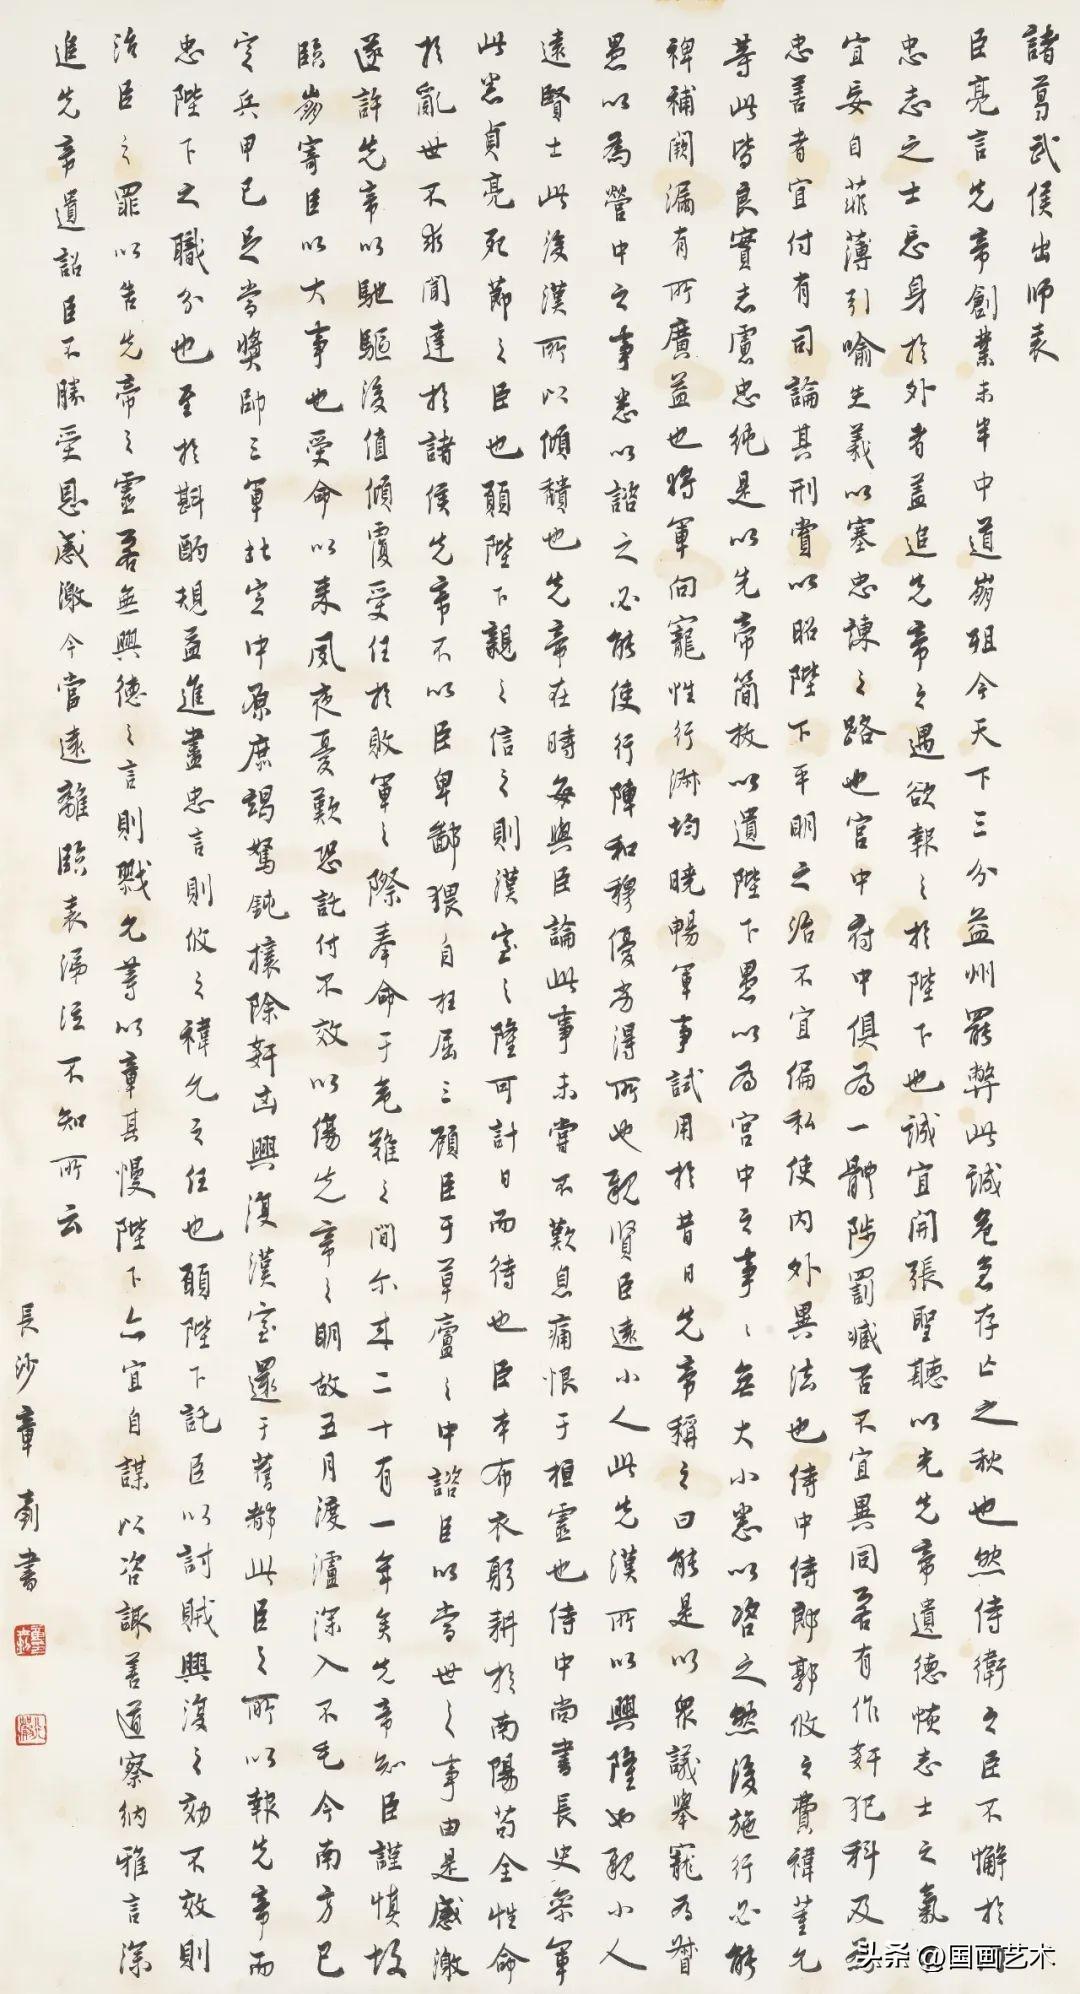 諸葛武侯出師表
臣亮言先帝創業未半中道崩殂今天下三分益州罷弊此誠危急存亡之秋也然侍衛之臣不懈於
忠志之士忘身於外者蓋追先帝之遇欲報之於陛下也誠宜開張聖聽以光先帝遺德恢志士之氣
宜妄自菲薄引喻失義以塞忠諫之路也宮中府中俱為一體陟罰臧否不宜異同若有作奸犯科及為
忠善者宜付有司論其刑賞以昭陛下平明之治不宜偏私使内外異法也侍中侍郎郭攸之費禕董允
等此皆良實志慮忠純是以先帝簡拔以遺陛下愚以為宮中之事々無大小悉以咨之然後施行必能
裨補闕漏有所廣益也將軍向寵性行淑均曉暢軍事試用於昔日先帝稱之曰能是以衆議舉寵為督
愚以為營中之事悉以諮之必能使行陣和穆優劣得所也親賢臣遠小人此先漢所以興隆也親小人
遠賢士此後漢所以傾穨也先帝在時每與臣論此事未嘗不歎息痛恨于桓靈也侍中尚書長史參軍
此悉貞亮死節之臣也願陛下親之信之則漢室之隆可計日而待也臣本布衣躬耕於南陽苟全性命
於亂世不求聞達於諸侯先帝不以臣卑鄙猥自枉屈三顧臣于草廬之中諮臣以當世之事由是感激
遂許先帝以馳驅後值傾覆受任於敗軍之際奉命于危難之間尔來二十有一年矣先帝知臣謹慎故
臨崩寄臣以大事也受命以來夙夜憂歎恐託付不效以傷先帝之明故五月渡瀘深入不毛今南方已
定兵甲已足當獎帥三軍北定中原庶竭駑鈍攘除奸凶興復漢室還于舊都此臣之所以報先帝而
忠陛下之職分也至於斟酌規益進盡忠言則攸之禕允之任也願陛下託臣以討賊興復之効不效則
治臣之罪以告先帝之靈若無興德之言則戮允等以章其慢陛下亦宜自謀以咨諏善道察納雅言深
追先帝遺詔臣不勝受恩感激今當遠離臨表涕泣不知所云
長沙章書
头条 @国画艺术